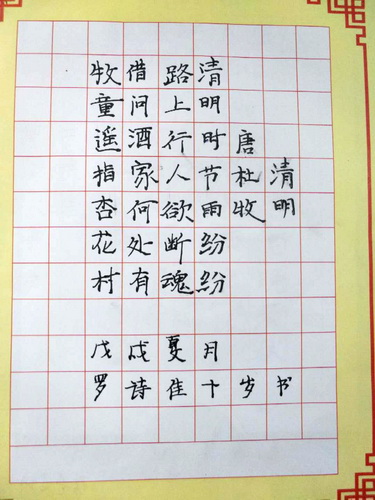 清明
唐杜牧
清明时节雨纷纷
路上行人欲断魂
借问酒家何处有
牧童遥指杏花村
戊戌夏月
罗诗佳十岁书